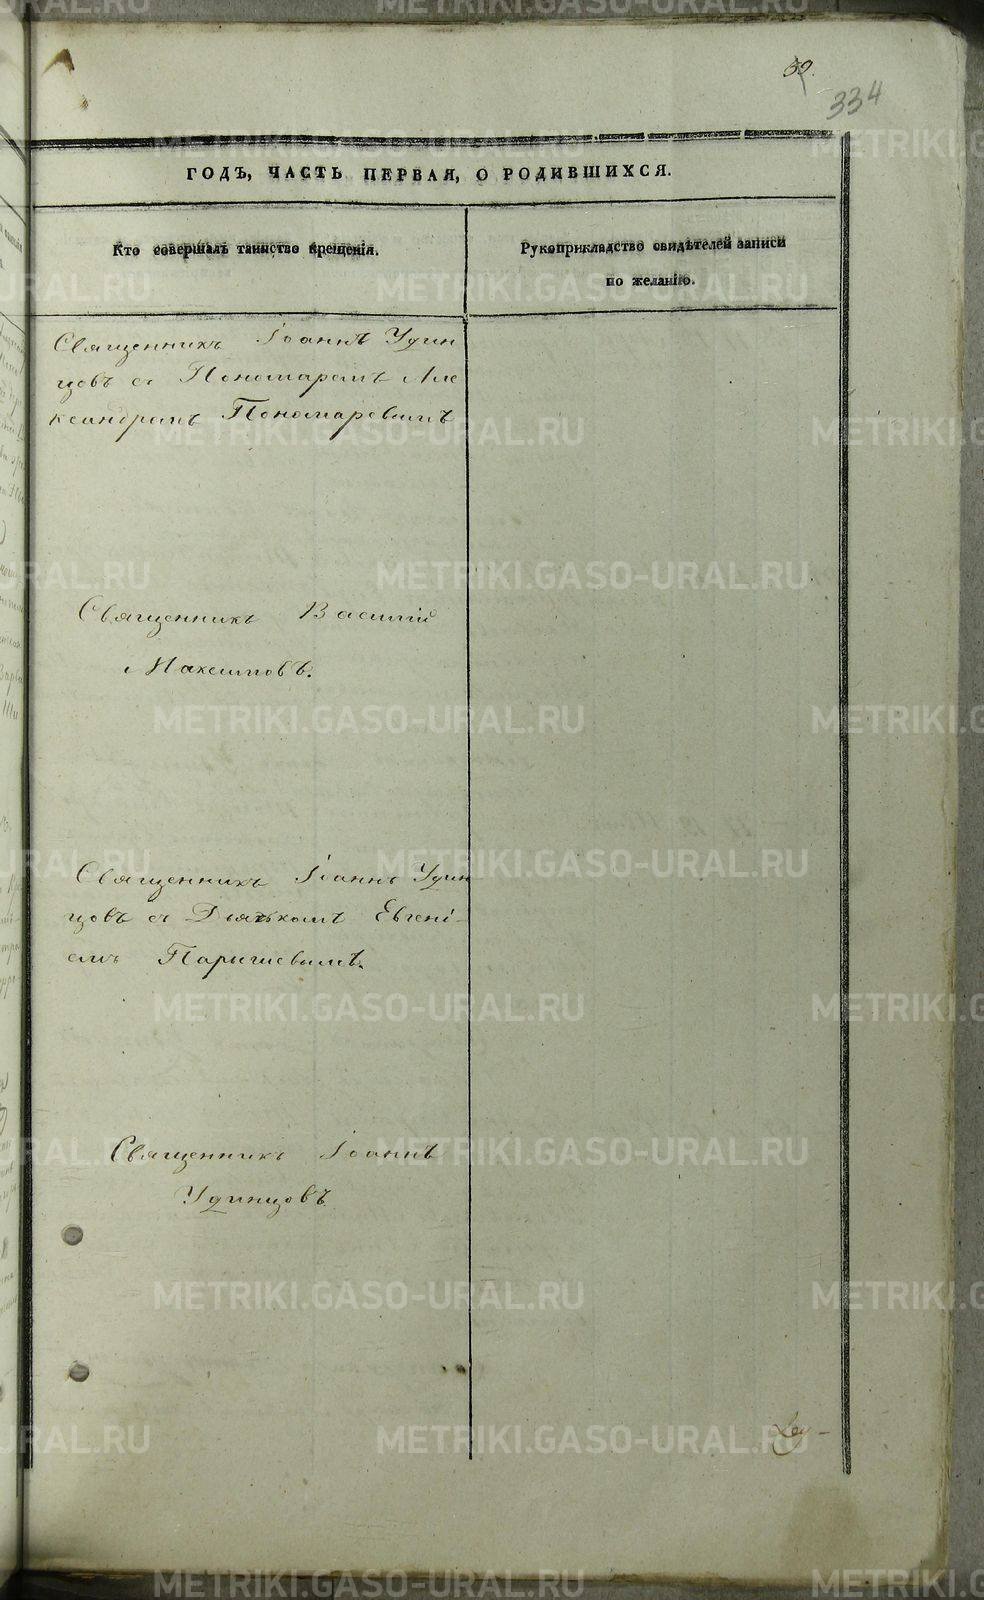 59.
334
ГОДЪ, ЧАСТЬ ПЕРВАЯ, О РОДИВШИХСЯ.
Кто совершалъ таинство крещенія.
Рукоприкладство свидѣтелей записи
по желанію.
Священникъ Іоаннъ Удин
цовъ съ Пономаремъ Але
ксандромъ Пономаревымъ
Священникъ Василій
Максимовъ.
Священникъ Іоаннъ Удин
цовъ съ Дьячкомъ Евгені-
емъ
Священникъ Іоаннъ
Удинцовъ
METRIKI.GASO-URAL.RU